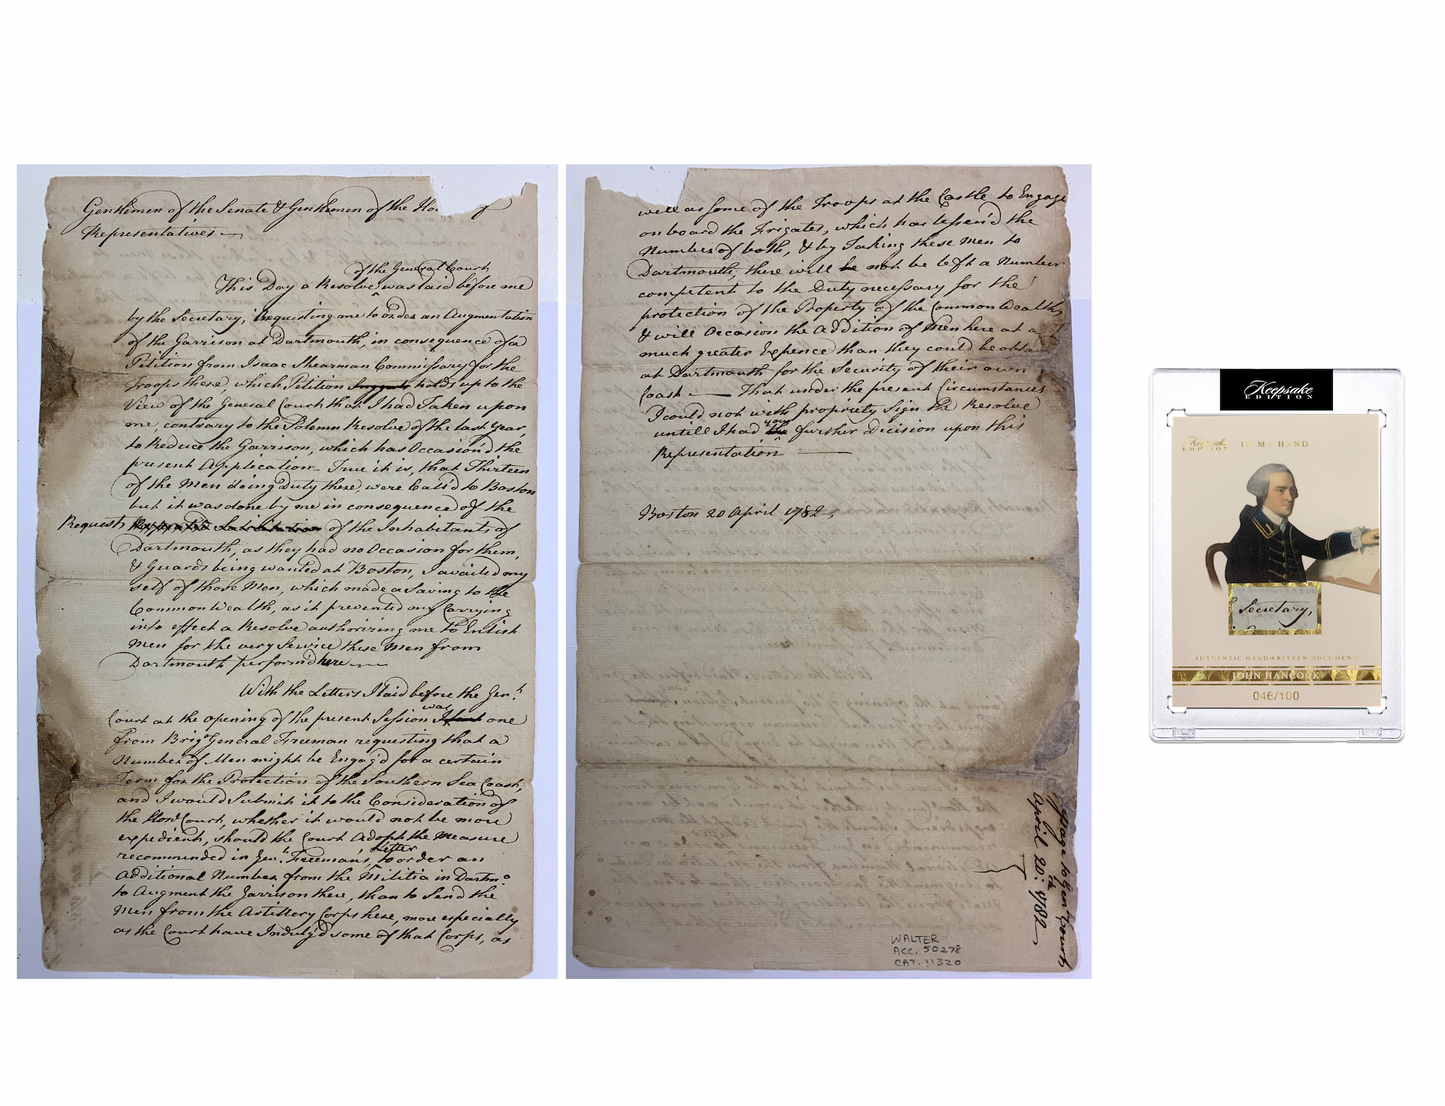 Gentlemen of the Senate & Gentlemen of the Hou of
Representatives
of the General Court
This Day a Resolve was laid before me
by the Secretary, Requesting me to order an Augmentation
of the Garrison at Dartmouth, in consequence of a
Petition from Isaac Shearman Commissary for the
Troops there, which Petition holds up to the
View of the General Court that I had Taken upon
me, contrary to the Solemn Resolve of the last Year
to Reduce the Garrison, which has Occasion'd the
present Application. True it is, that Thirteen
of the Men doing Duty there, were Call'd to Boston
but it was done by me in consequence of the
Requests of the Inhabitants of
Dartmouth, as they had no Occasion for them,
& Guards being wanted at Boston, I availed my
self of those Men, which made a Saving to the
Common Wealth, as it prevented my Carrying
into effect a Resolve authorizing me to Enlist
Men for the very Service these Men from
Dartmouth perform'd here
With the Letters I laid before the Genl
Court at the opening of the present Session was one
from Brigr General Freeman requesting that a
Number of Men might be Engag'd for a certain
Term for the Protection of the Southern Sea Coast,
and I would Submit it to the Consideration of
the Honl Court, whether it would not be more
expedient, should the Court Adopt the Measure
recommended in Genl Freeman's Letter, to order an
Additional Number from the Militia in Dartmo
to Augment the Garrison there, than to Send the
Men from the Artillery Corps here, more especially
as the Court have Indulg'd some of that Corps, as
well as some of the Troops at the Castle to Engage
on board the Frigates, which has lessen'd the
Number of both, & by Taking these Men to
Dartmouth, there will not be left a Number
competent to the Duty necessary for the
protection of the Property of the Common Wealth,
& will Occasion the Addition of Men here at a
much greater Expence than they could be obtain
at Dartmouth for the Security of their own
Coast — That under the present Circumstances
I could not with propriety Sign the Resolve
untill I had your further decision upon this
Representation
Boston 20 April 1782
Message to Gen Court
April 20: 1782
WALTER
ACC. 50278
CAT. 11320
Keepsake
EDITION
Keepsake
EDITION
AUTHENTIC HANDWRITTEN DOCUMENT
Secretary,
JOHN HANCOCK
046/100